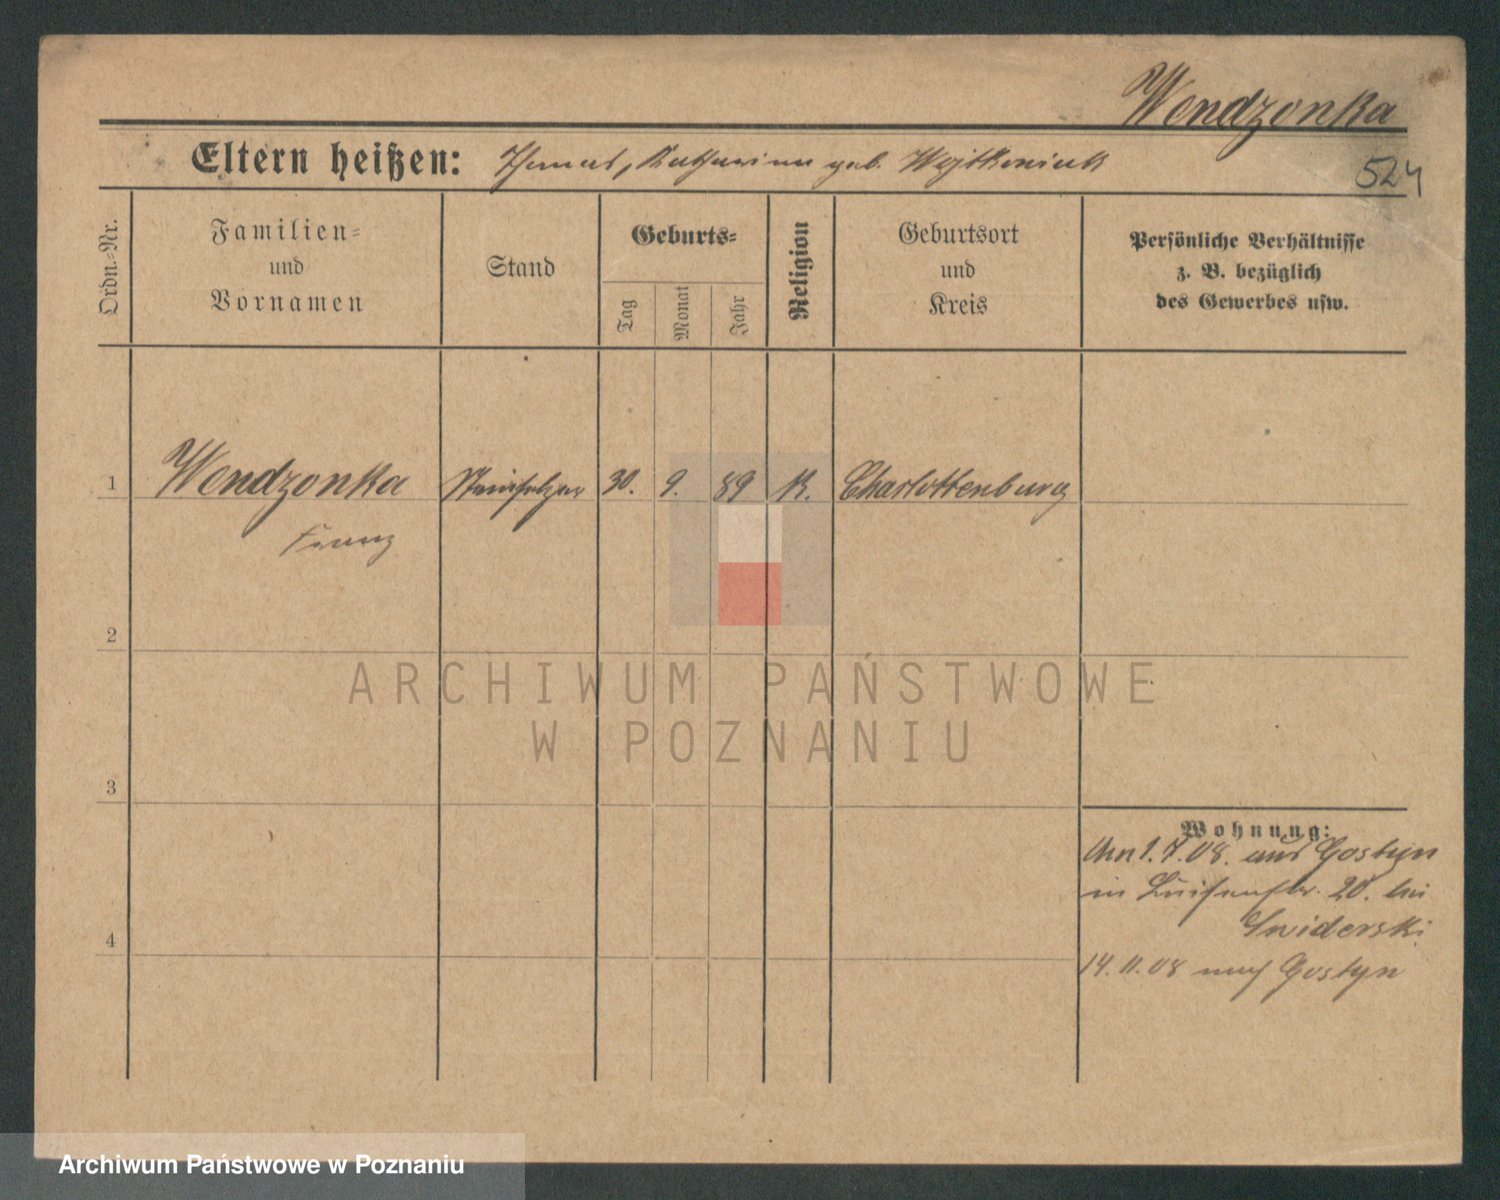 Wendzonka
Eltern heißen: Thomas, Katharina geb. Wojtkowiak
524
Ordn.-Nr.
Familien-
und
Vornamen
Stand
Geburts-
Tag
Monat
Jahr
Religion
Geburtsort
und
Kreis
Persönliche Verhältnisse
z. B. bezüglich
des Gewerbes usw.
1 Wendzonka Steinsetzer 30. 9. 89 K. Charlottenburg
Franz
2
3
4
ARCHIWUM PAŃSTWOWE
W POZNANIU
Wohnung:
1.7.08. aus Gostyn
in Luisenstr. 20. bei
Swiderski
14.11.08 nach Gostyn
Archiwum Państwowe w Poznaniu